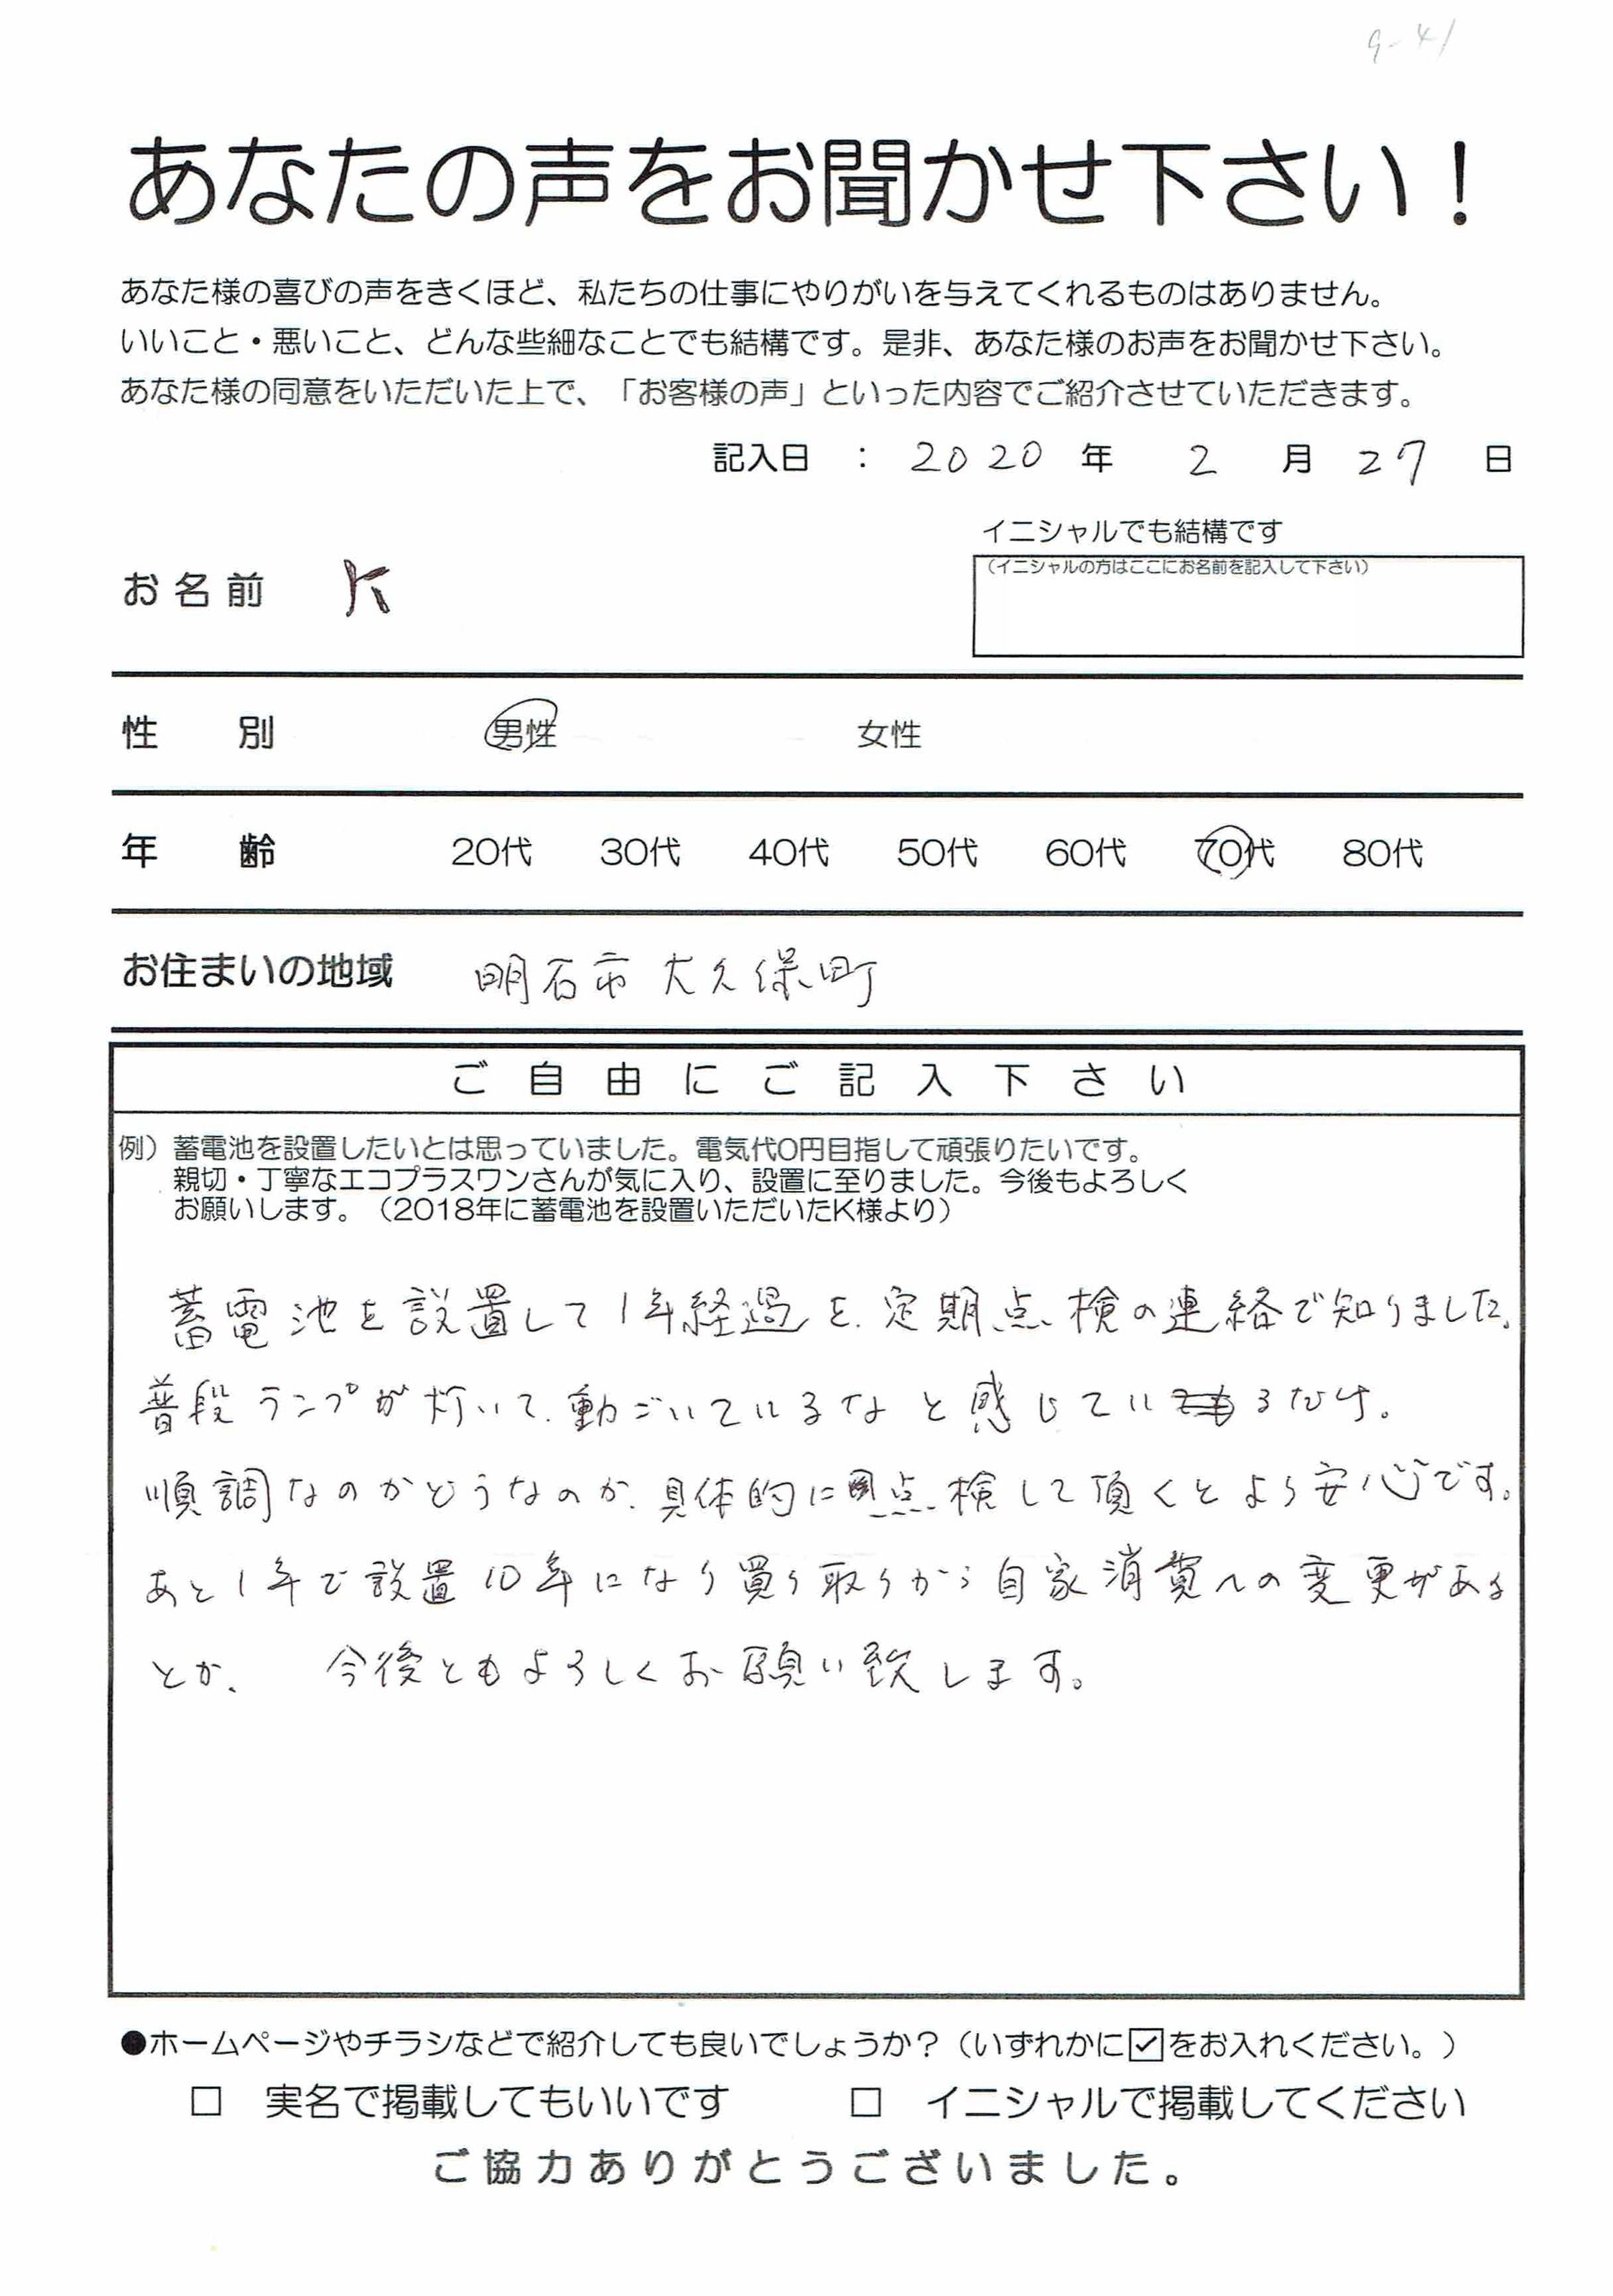 9-41
あなたの声をお聞かせ下さい！
あなた様の喜びの声をきくほど、私たちの仕事にやりがいを与えてくれるものはありません。
いいこと・悪いこと、どんな些細なことでも結構です。是非、あなた様のお声をお聞かせ下さい。
あなた様の同意をいただいた上で、「お客様の声」といった内容でご紹介させていただきます。
記入日 ： 2020 年 2 月 27 日
イニシャルでも結構です
（イニシャルの方はここにお名前を記入して下さい）
お名前 K
性 別 男性 女性
年 齢 20代 30代 40代 50代 60代 70代 80代
お住まいの地域 明石市大久保町
ご自由にご記入下さい
例）蓄電池を設置したいとは思っていました。電気代0円目指して頑張りたいです。
親切・丁寧なエコプラスワンさんが気に入り、設置に至りました。今後もよろしく
お願いします。（2018年に蓄電池を設置いただいたK様より）
蓄電池を設置して1年経過を、定期点検の連絡で知りました。
普段ランプが灯いて、動ごいているなと感じているだけ。
順調なのかどうなのか、具体的に点検して頂くとより安心です。
あと1年で設置10年になり買り取りから自家消費への変更がある
とか、 今後ともよろしくお願い致します。
●ホームページやチラシなどで紹介しても良いでしょうか？（いずれかに☑をお入れください。）
□ 実名で掲載してもいいです □ イニシャルで掲載してください
ご協力ありがとうございました。